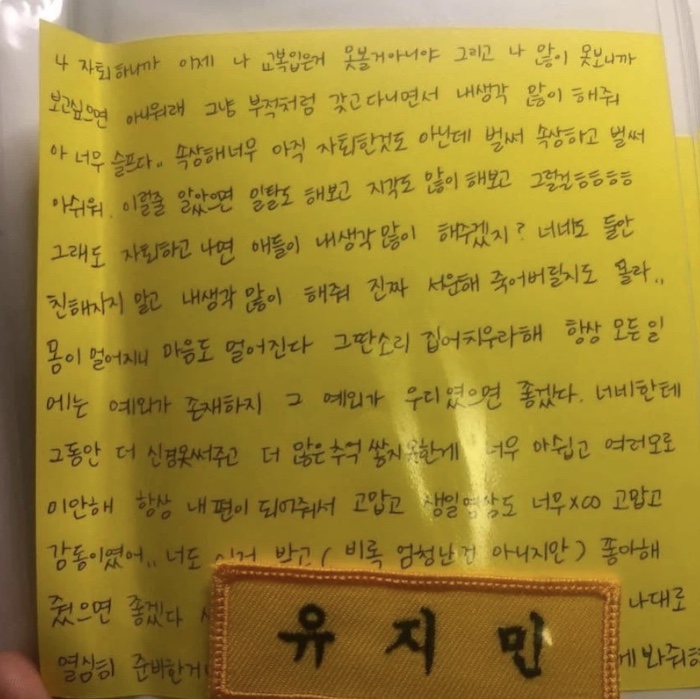 나 자퇴하니까 이제 나 교복입은거 못볼거아니야 그리고 나 많이 못보니까
보고싶으면 아쉬워래 그냥 부적처럼 갖고다니면서 내생각 많이 해줘
아 너무 슬프다.. 속상해너무 아직 자퇴한것도 아닌데 벌써 속상하고 벌써
아쉬워. 이럴줄 알았으면 일탈도 해보고 지각도 많이해보고 그럴걸ㅎㅎㅎㅎ
그래도 자퇴하고 나면 애들이 내생각많이 해주겠지? 너네도 둘만
친해지지 말고 내생각 많이 해줘 진짜 서운해 죽어버릴지도 몰라..
몸이 멀어지니 마음도 멀어진다 그딴소리 집어치우라해 항상 모든일
에는 예외가 존재하지 그 예외가 우리였으면 좋겠다. 너네한테
그동안 더 신경못써주고 더 많은추억 쌓지못한게 너무 아쉽고 여러모로
미안해 항상 내편이 되어줘서 고맙고 생일영상도 너무x∞ 고맙고
감동이였어.. 너도 받고 (비록 엄청난건 아니지만) 좋아해
줬으면 좋겠다 나대로
열심히 준비한거 게 봐줘
유지민